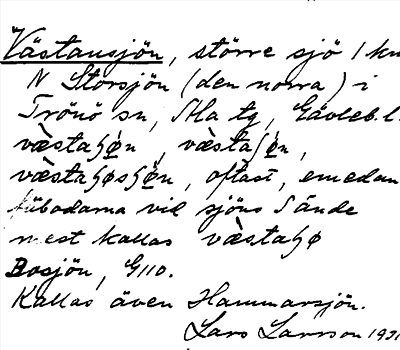 Västansjön, större sjö 1 km
N Storsjön (den norra) i
Trönö sn, Ala tg, Gävleb. l.
væ̀staʃø̜n, væ̀staʃø̜n,
væ̀staʃøsʃø̜n, oftast, emedan
fäbodarna vid sjöns S ände
mest kallas væ̀staʃø
Bosjön, G110.
Kallas även Hammarsjön.
Lars Larsson 1931